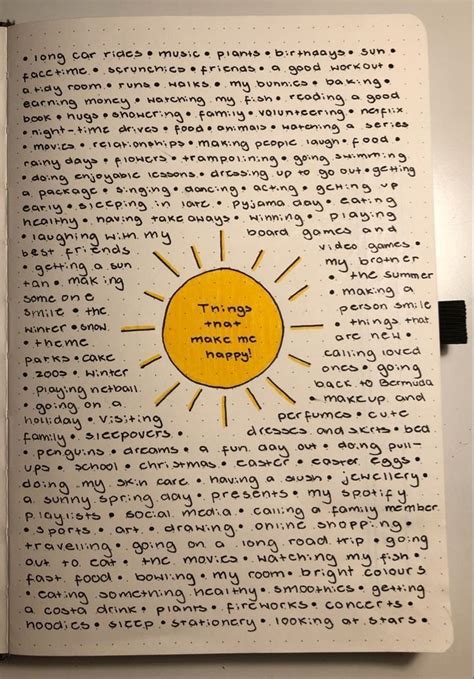 • long car rides • music • plants • birthdays • sun •
facetime • scrunchies • friends • a good workout •
a tidy room • runs • walks • my bunnies • baking •
earning money • watching my fish • reading a good
book • hugs • showering • family • volunteering • netflix
• night-time drives • food • animals • watching a series
• movies • relationships • making people laugh • food •
rainy days • flowers • trampolining • going swimming
• doing enjoyable lessons • dressing up to go out • getting
a package • singing • dancing • acting • getting up
early • sleeping in late • pyjama day • eating
healthy • having takeaways • winning • playing
• laughing with my board games and
best friends video games •
• getting a sun my brother
tan • making • the summer
some one • making a
smile • the person smile
winter • snow • things that
• theme are new •
parks • cake calling loved
• zoos • winter ones • going
• playing netball back to Bermuda
• going on a • makeup and
holliday • visiting perfumes • cute
family • sleepovers • dresses and skirts • bed
• penguins • dreams • a fun day out • doing pull-
ups • school • christmas • easter • easter eggs •
doing my skin care • having a slush • jewellery •
a sunny spring day • presents • my spotify
playlists • social media • calling a family member
• sports • art • drawing • online shopping •
travelling • going on a long road trip • going
out to eat • the movies • watching my fish •
fast food • bowling • my room • bright colours
• eating something healthy • smoothies • getting
a costa drink • plants • fireworks • concerts •
hoodies • sleep • stationery • looking at stars •
Things
that
make me
happy!